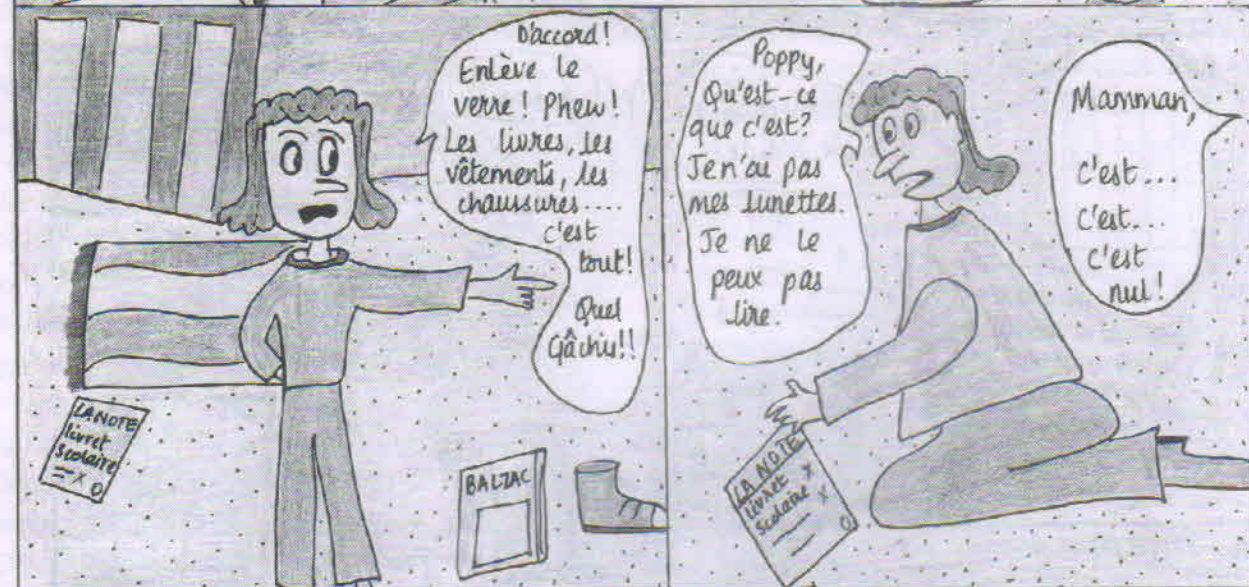 D'accord!
Enlève le
verre! Phew!
Les livres, les
vêtements, les
chaussures....
c'est
tout!
Quel
Gâchis!!
LA NOTE
livret
Scolaire
BALZAC
Poppy,
Qu'est-ce
que c'est?
Je n'ai pas
mes lunettes.
Je ne le
peux pas
lire.
Mamman,
c'est...
c'est...
c'est
nul!
LA NOTE
livret
Scolaire